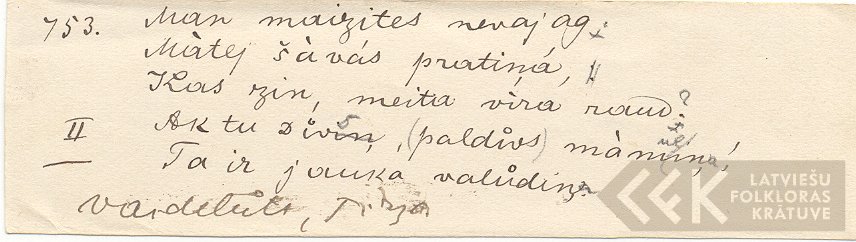 753. Man maizites nevajag:
Mātej šāvás pratiņá,
Kas zin, meita vira raud?
II Ak tu Divin, (paldivs) māmiņá,
Ta ir jauka valůdiņa
LATVIEŠU
FOLKLORAS
KRĀTUVE